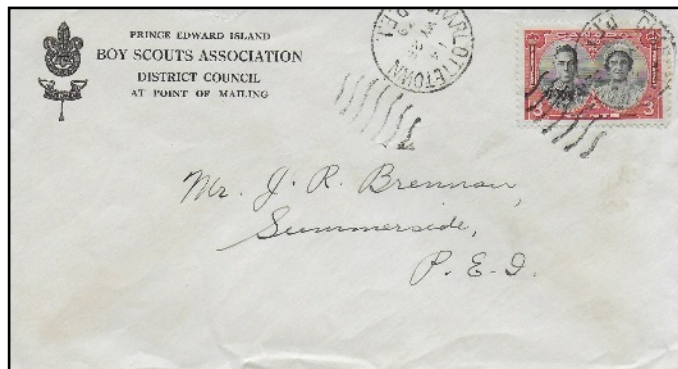 PRINCE EDWARD ISLAND
BOY SCOUTS ASSOCIATION
DISTRICT COUNCIL
AT POINT OF MAILING
CHARLOTTETOWN
P.E.I.
3 3
Mr. J. R. Brennan,
Summerside,
P. E. I.